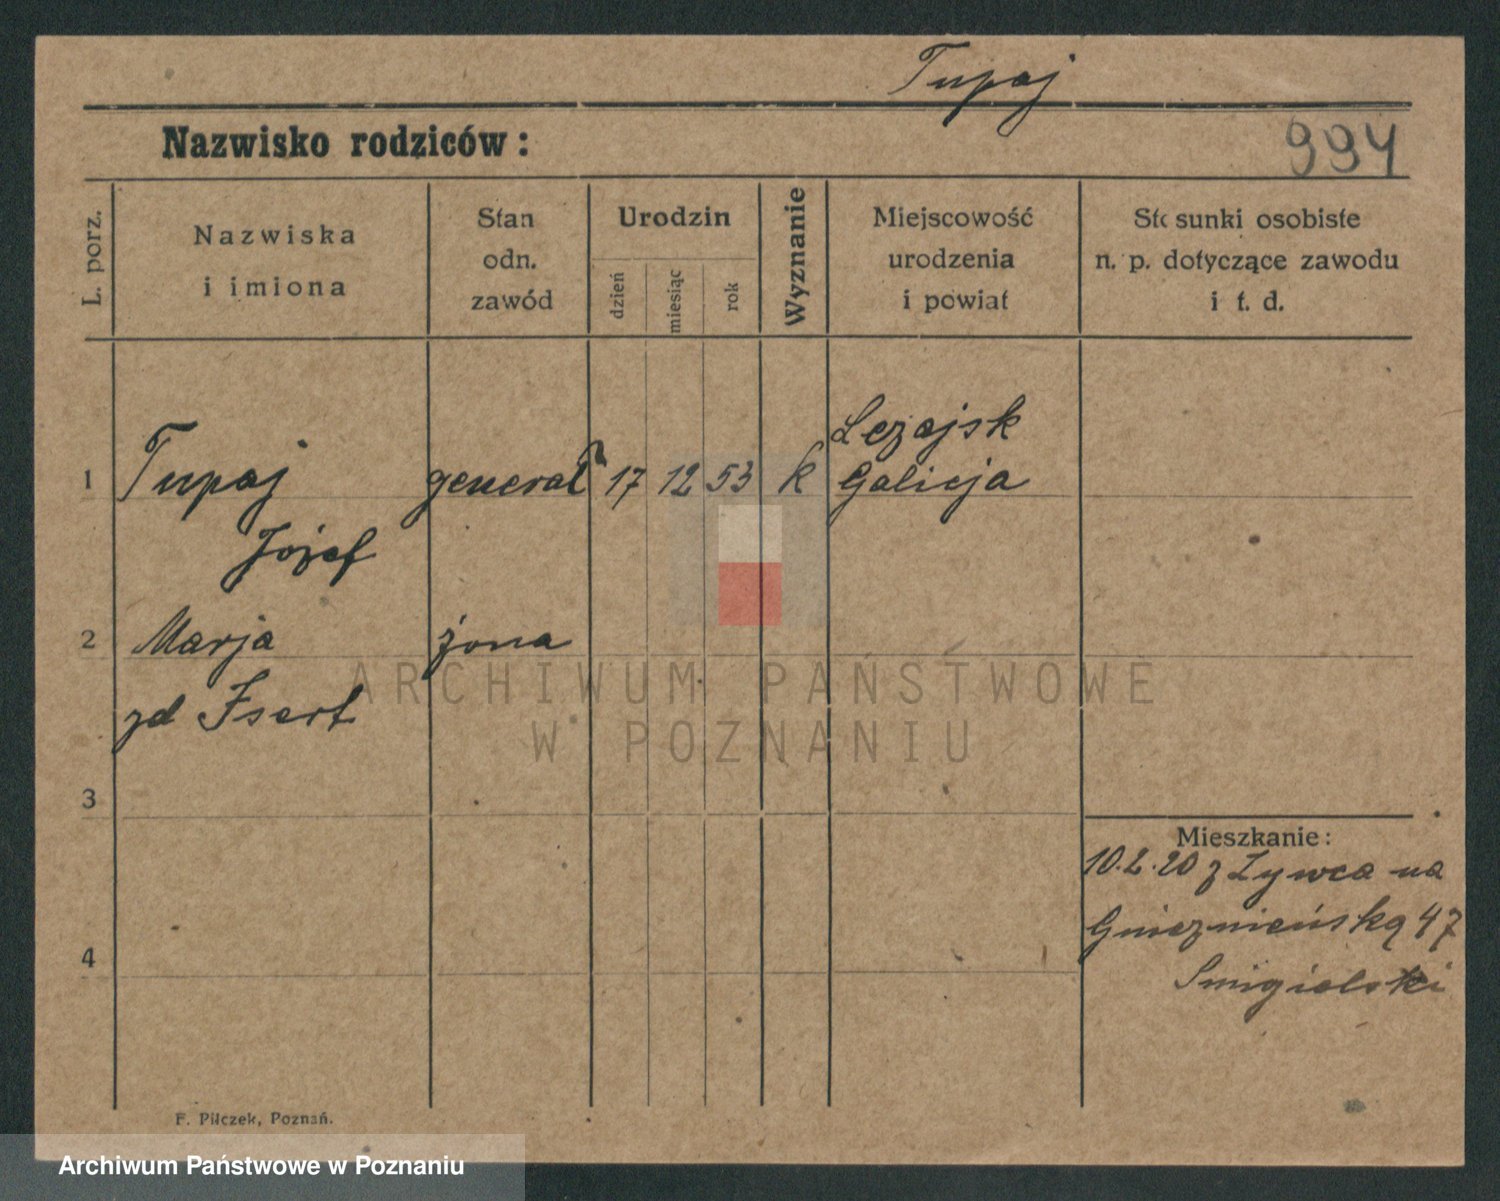 Tupaj
Nazwisko rodziców:
994
L. porz.
Nazwiska
i imiona
Stan
odn.
zawód
Urodzin
dzień
miesiąc
rok
Wyznanie
Miejscowość
urodzenia
i powiat
Stosunki osobiste
n. p. dotyczące zawodu
i t. d.
1
Tupaj
Józef
generał
17
12
53
k
Leżajsk
Galicja
2
Marja
zd Isert
żona
3
4
Mieszkanie:
10.2.20 z Żywca na
Gnieznieńską 47
Smigielski
F. Piłczek, Poznań.
ARCHIWUM PAŃSTWOWE
W POZNANIU
Archiwum Państwowe w Poznaniu